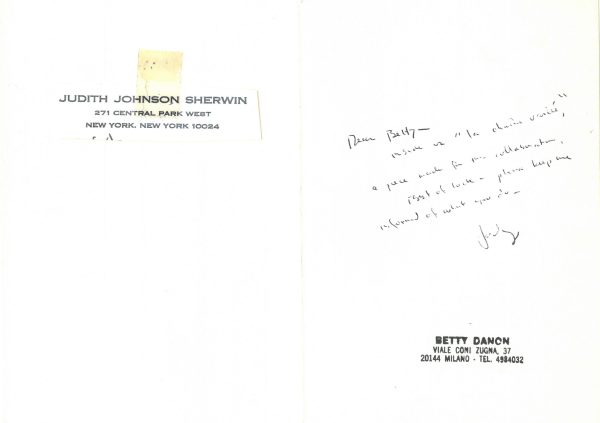 JUDITH JOHNSON SHERWIN
271 CENTRAL PARK WEST
NEW YORK, NEW YORK 10024
Dear Betty—
inside is "la chair variée",
a piece made for our collaboration.
Best of luck – please keep me
informed of what you do—
Judy
BETTY DANON
VIALE CONI ZUGNA, 37
20144 MILANO - TEL. 4984032